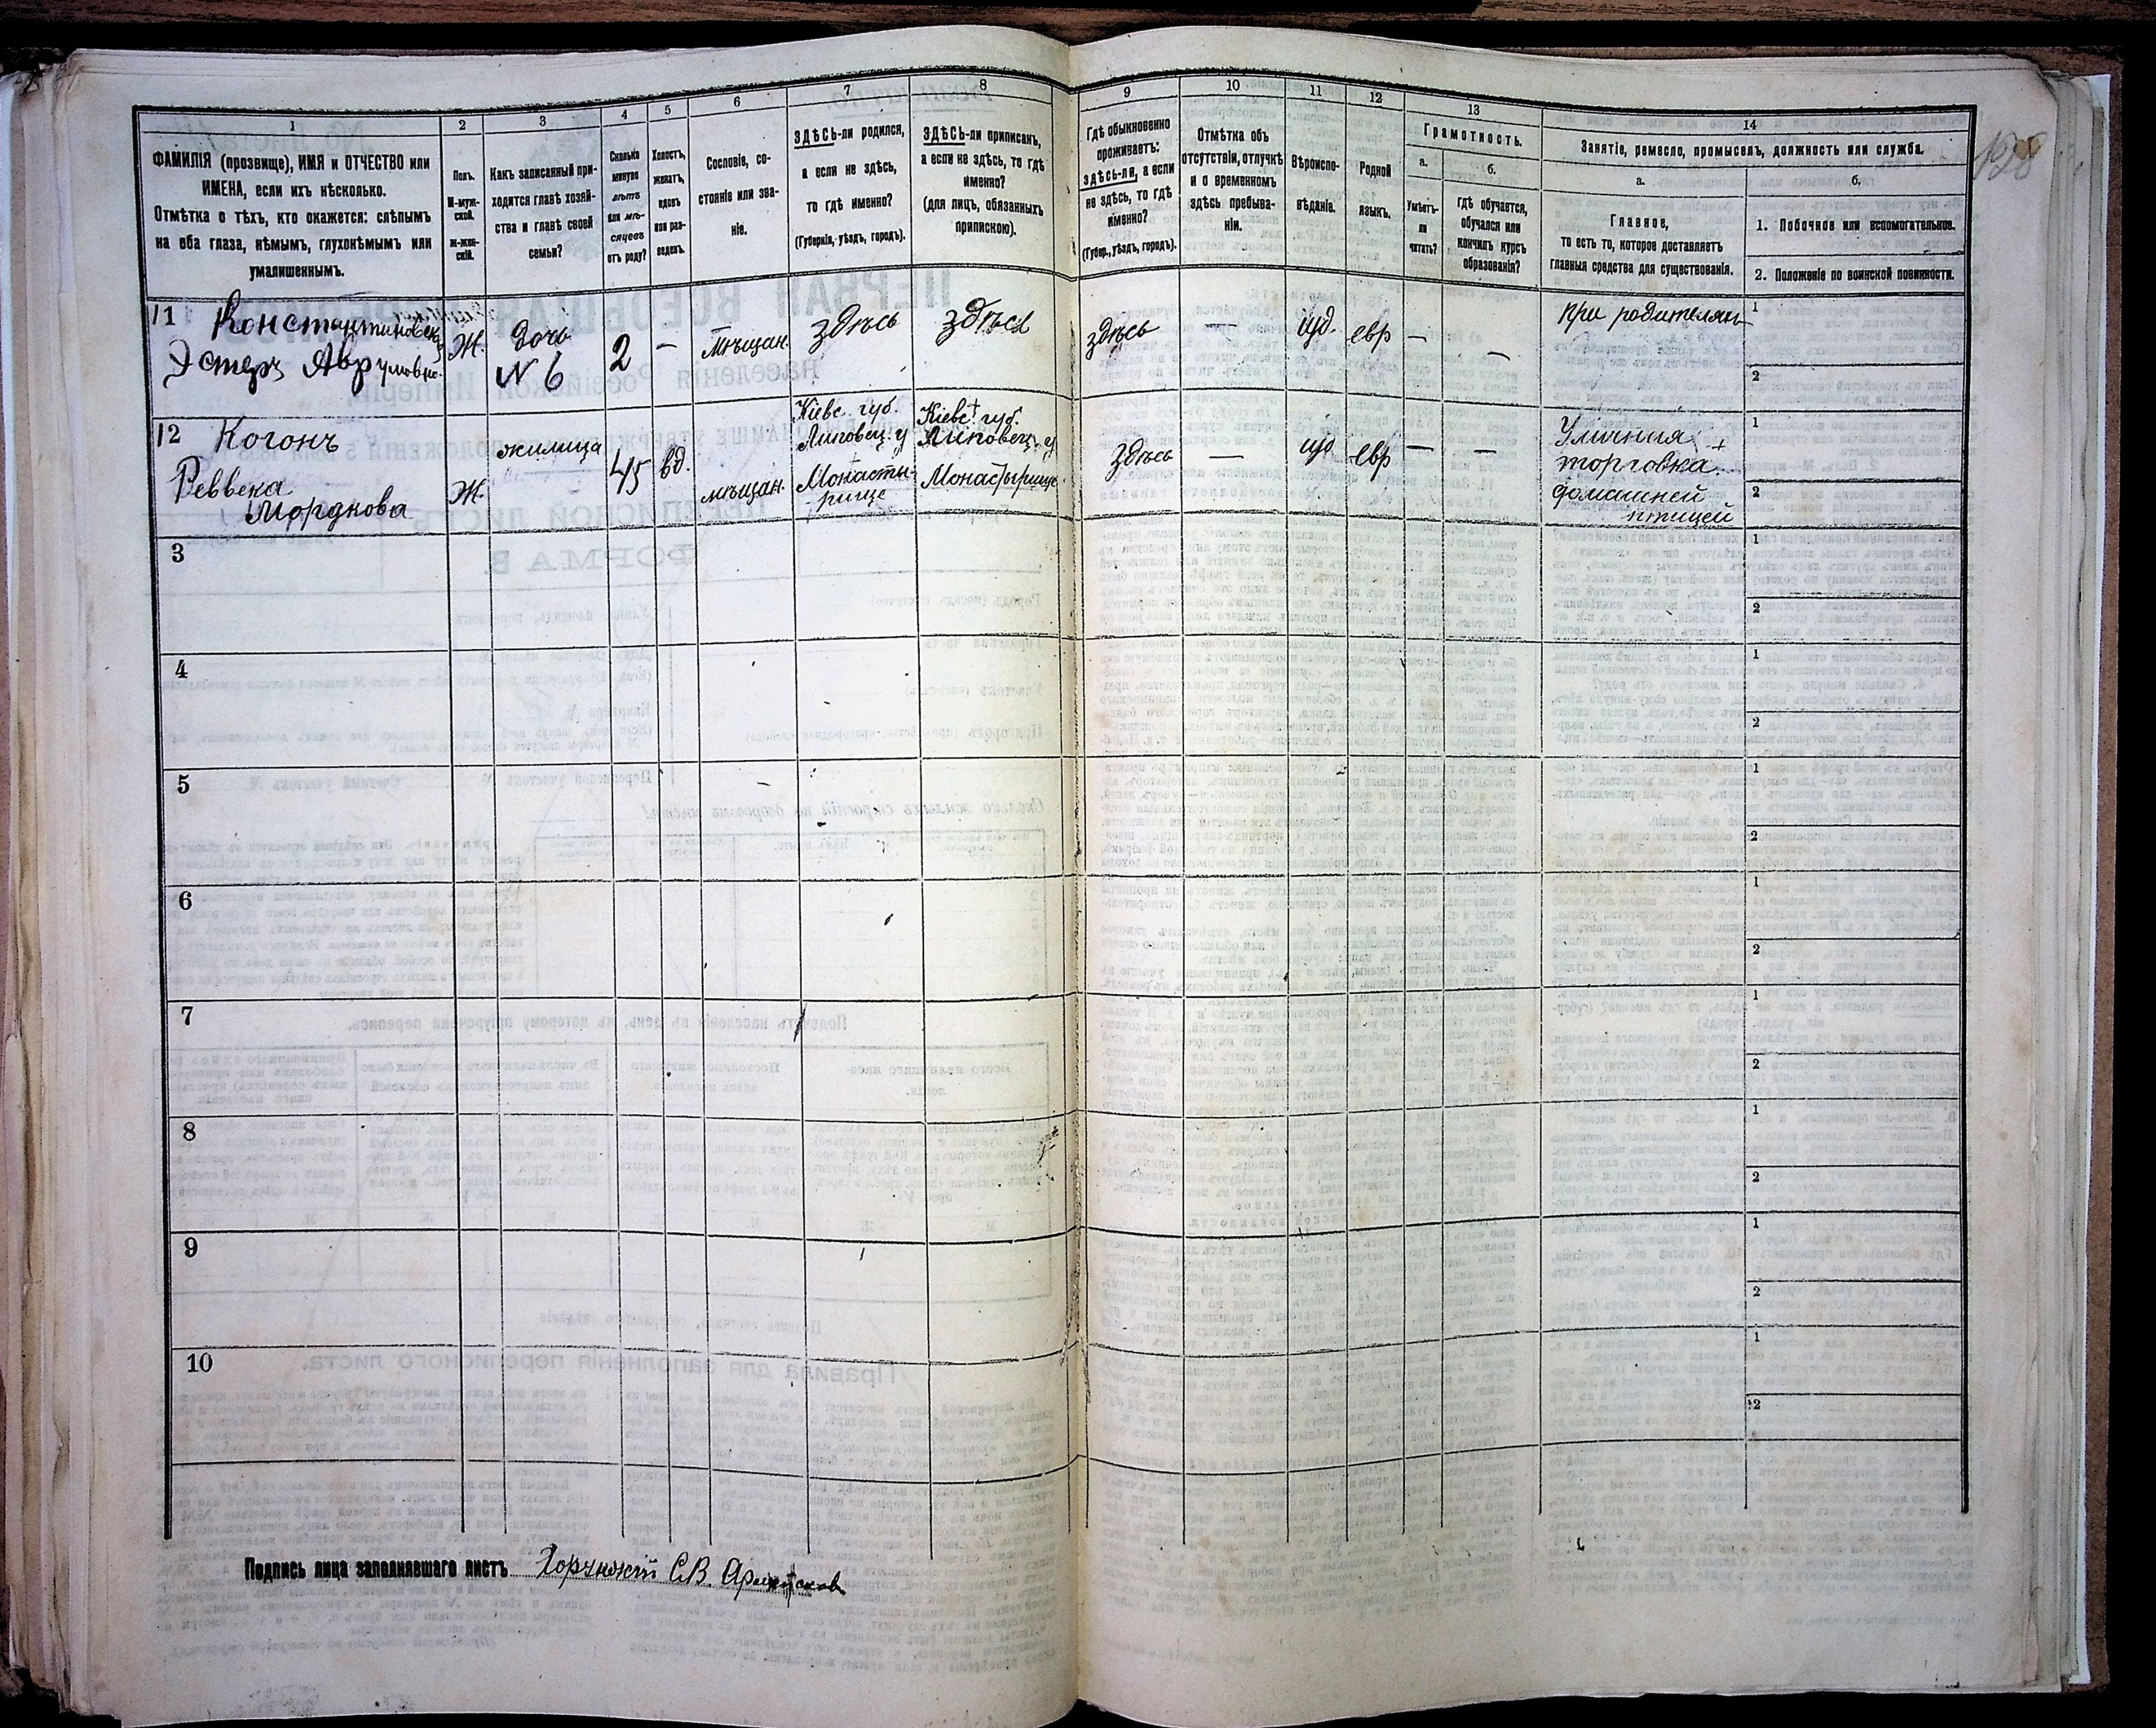 1
2
3
4
5
6
7
8
9
10
11
12
13
14
ФАМИЛІЯ (прозвище), ИМЯ и ОТЧЕСТВО или
ИМЕНА, если ихъ нѣсколько.
Отмѣтка о тѣхъ, кто окажется: слѣпымъ
на оба глаза, нѣмымъ, глухонѣмымъ или
умалишеннымъ.
Полъ.
М-муж-
ской.
ж-жен-
скій.
Какъ записанный при-
ходится главѣ хозяй-
ства и главѣ своей
семьи?
Сколько
минуло
лѣтъ
или мѣ-
сяцевъ
отъ роду?
Холостъ,
женатъ,
вдовъ
или раз-
веденъ.
Сословіе, со-
стояніе или зва-
ніе.
ЗДѢСЬ-ли родился,
а если не здѣсь,
то гдѣ именно?
(Губернія, уѣздъ, городъ).
ЗДѢСЬ-ли приписанъ,
а если не здѣсь, то гдѣ
именно?
(для лицъ, обязанныхъ
припискою).
Гдѣ обыкновенно
проживаетъ:
здѣсь-ли, а если
не здѣсь, то гдѣ
именно?
(Губер., уѣздъ, городъ).
Отмѣтка объ
отсутствіи, отлучкѣ
и о временномъ
здѣсь пребыва-
ніи.
Вѣроиспо-
вѣданіе.
Родной
языкъ.
Грамотность.
а.
б.
Умѣетъ-
ли
читать?
гдѣ обучается,
обучался или
кончилъ курсъ
образованія?
Занятіе, ремесло, промыселъ, должность или служба.
а.
б.
Главное,
то есть то, которое доставляетъ
главныя средства для существованія.
1. Побочное или вспомогательное.
2. Положеніе по воинской повинности.
128
11 Константиновск
Эстеръ Аврумовна
Ж.
дочь
№ 6
2
—
мѣщан.
здѣсь
здѣсь
здѣсь
—
іуд.
евр
—
—
при родителях
1
2
12 Когонъ
Реввека
Мордкова
Ж.
жилица
45
вд.
мѣщан.
Кіевс. губ.
Липовец. у
Монасты-
рище
Кіевс. губ.
Липовец. у
Монастырище
здѣсь
—
іуд
евр
—
—
Уличная
торговка
домашней
птицей
1
2
3
1
2
4
1
2
5
1
2
6
1
2
7
1
2
8
1
2
9
1
2
10
1
2
Подпись лица заполнявшаго листъ